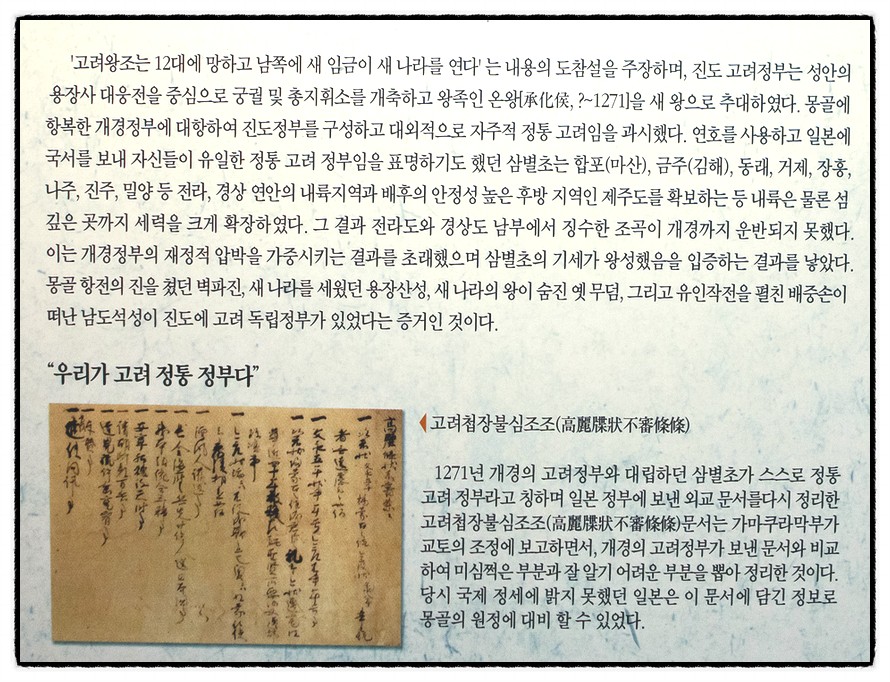 '고려왕조는 12대에 망하고 남쪽에 새 임금이 새 나라를 연다' 는 내용의 도참설을 주장하며, 진도 고려정부는 성안의
용장사 대웅전을 중심으로 궁궐 및 총지휘소를 개축하고 왕족인 온왕[承化侯, ?~1271]을 새 왕으로 추대하였다. 몽골에
항복한 개경정부에 대항하여 진도정부를 구성하고 대외적으로 자주적 정통 고려임을 과시했다. 연호를 사용하고 일본에
국서를 보내 자신들이 유일한 정통 고려 정부임을 표명하기도 했던 삼별초는 합포(마산), 금주(김해), 동래, 거제, 장흥,
나주, 진주, 밀양 등 전라, 경상 연안의 내륙지역과 배후의 안정성 높은 후방 지역인 제주도를 확보하는 등 내륙은 물론 섬
깊은 곳까지 세력을 크게 확장하였다. 그 결과 전라도와 경상도 남부에서 징수한 조곡이 개경까지 운반되지 못했다.
이는 개경정부의 재정적 압박을 가중시키는 결과를 초래했으며 삼별초의 기세가 왕성했음을 입증하는 결과를 낳았다.
몽골 항전의 진을 쳤던 벽파진, 새 나라를 세웠던 용장산성, 새 나라의 왕이 숨진 옛 무덤, 그리고 유인작전을 펼친 배중손이
떠난 남도석성이 진도에 고려 독립정부가 있었다는 증거인 것이다.
“우리가 고려 정통 정부다”
고려첩장불심조조(高麗牒狀不審條條)
1271년 개경의 고려정부와 대립하던 삼별초가 스스로 정통
고려 정부라고 칭하며 일본 정부에 보낸 외교 문서를다시 정리한
고려첩장불심조조(高麗牒狀不審條條)문서는 가마쿠라막부가
교토의 조정에 보고하면서, 개경의 고려정부가 보낸 문서와 비교
하여 미심쩍은 부분과 잘 알기 어려운 부분을 뽑아 정리한 것이다.
당시 국제 정세에 밝지 못했던 일본은 이 문서에 담긴 정보로
몽골의 원정에 대비 할 수 있었다.